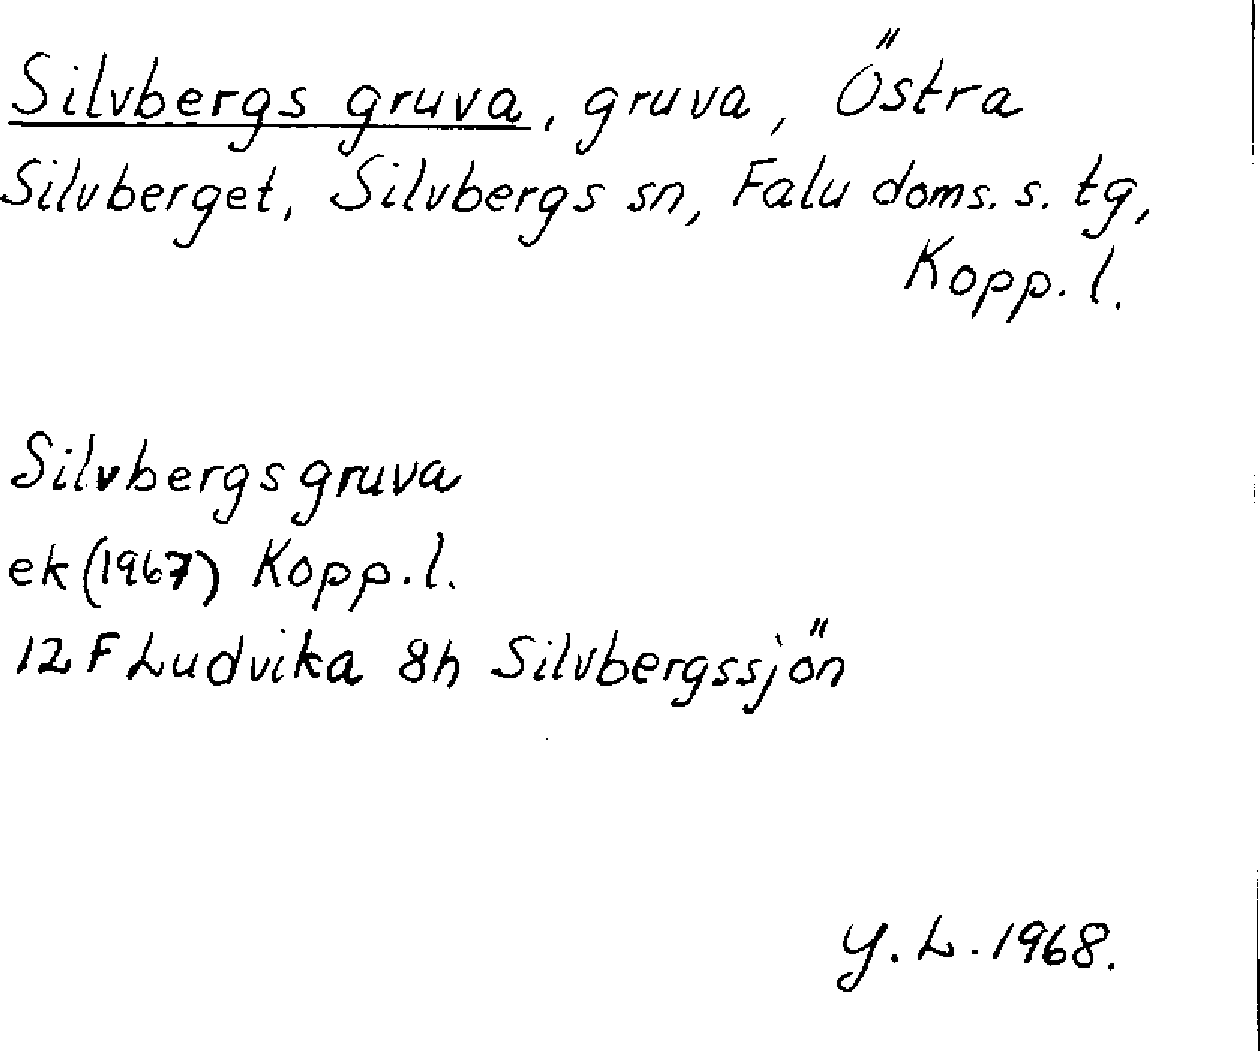 Silvbergs gruva, gruva, Östra
Silvberget, Silvbergs sn, Falu doms. s. tg,
Kopp. l.
Silvbergsgruva
ek (1967) Kopp. l.
12 F Ludvika 8h Silvbergssjön
Y. L. 1968.